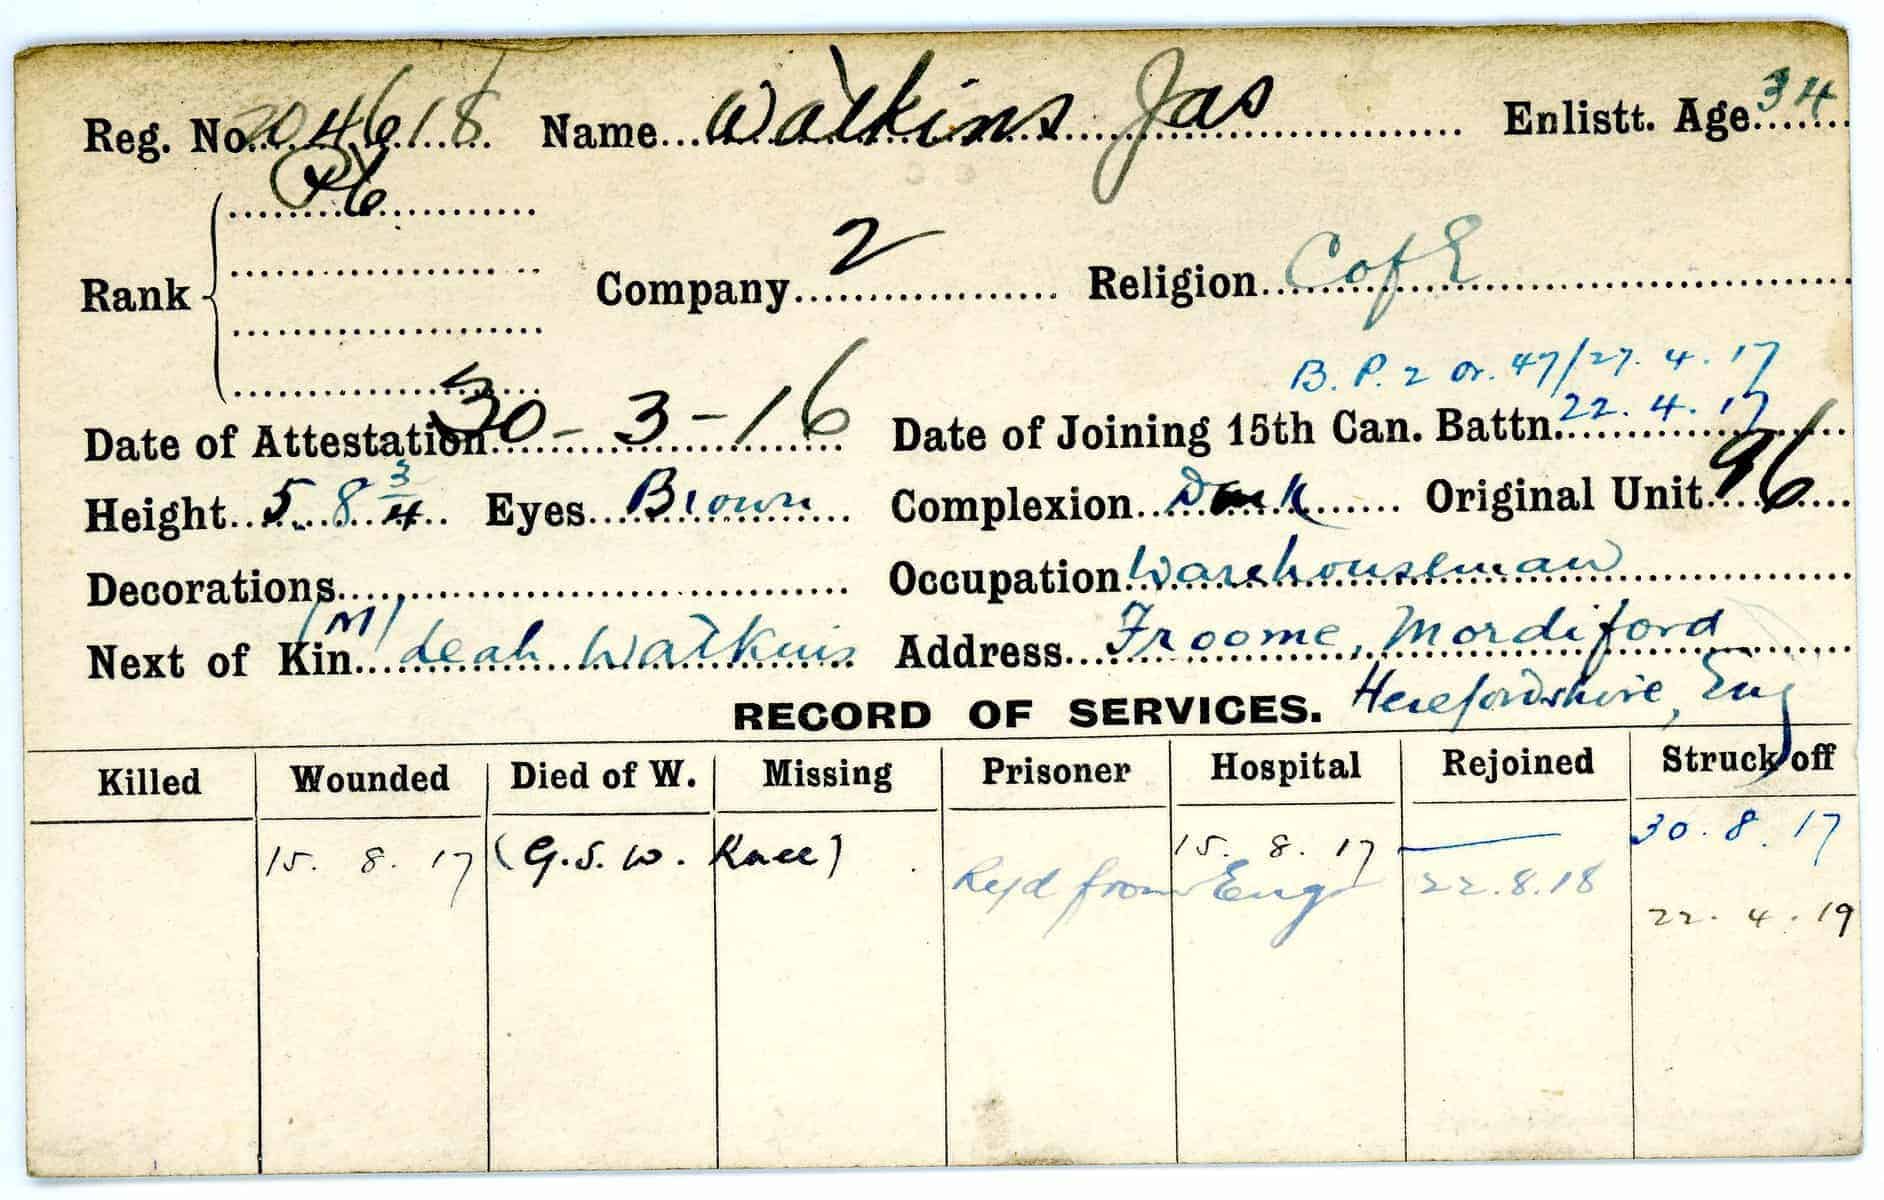 Reg. No. 204618 Name Watkins Jas Enlistt. Age 34
Pte
Rank Company 2 Religion C of E
B. P. 2 Or. 47/27. 4. 17
Date of Attestation 30-3-16 Date of Joining 15th Can. Battn. 22. 4. 17
Height 5. 8 3/4 Eyes Brown Complexion Dark Original Unit 96
Decorations Occupation Warehouseman
Next of Kin (M) Leah Watkins Address Froome, Mordiford
RECORD OF SERVICES. Herefordshire, Eng
Killed Wounded Died of W. Missing Prisoner Hospital Rejoined Struck off
15. 8. 17 (G.S.W. Knee) 15. 8. 17 30. 8. 17
from Eng 22.8.18
22. 4. 19